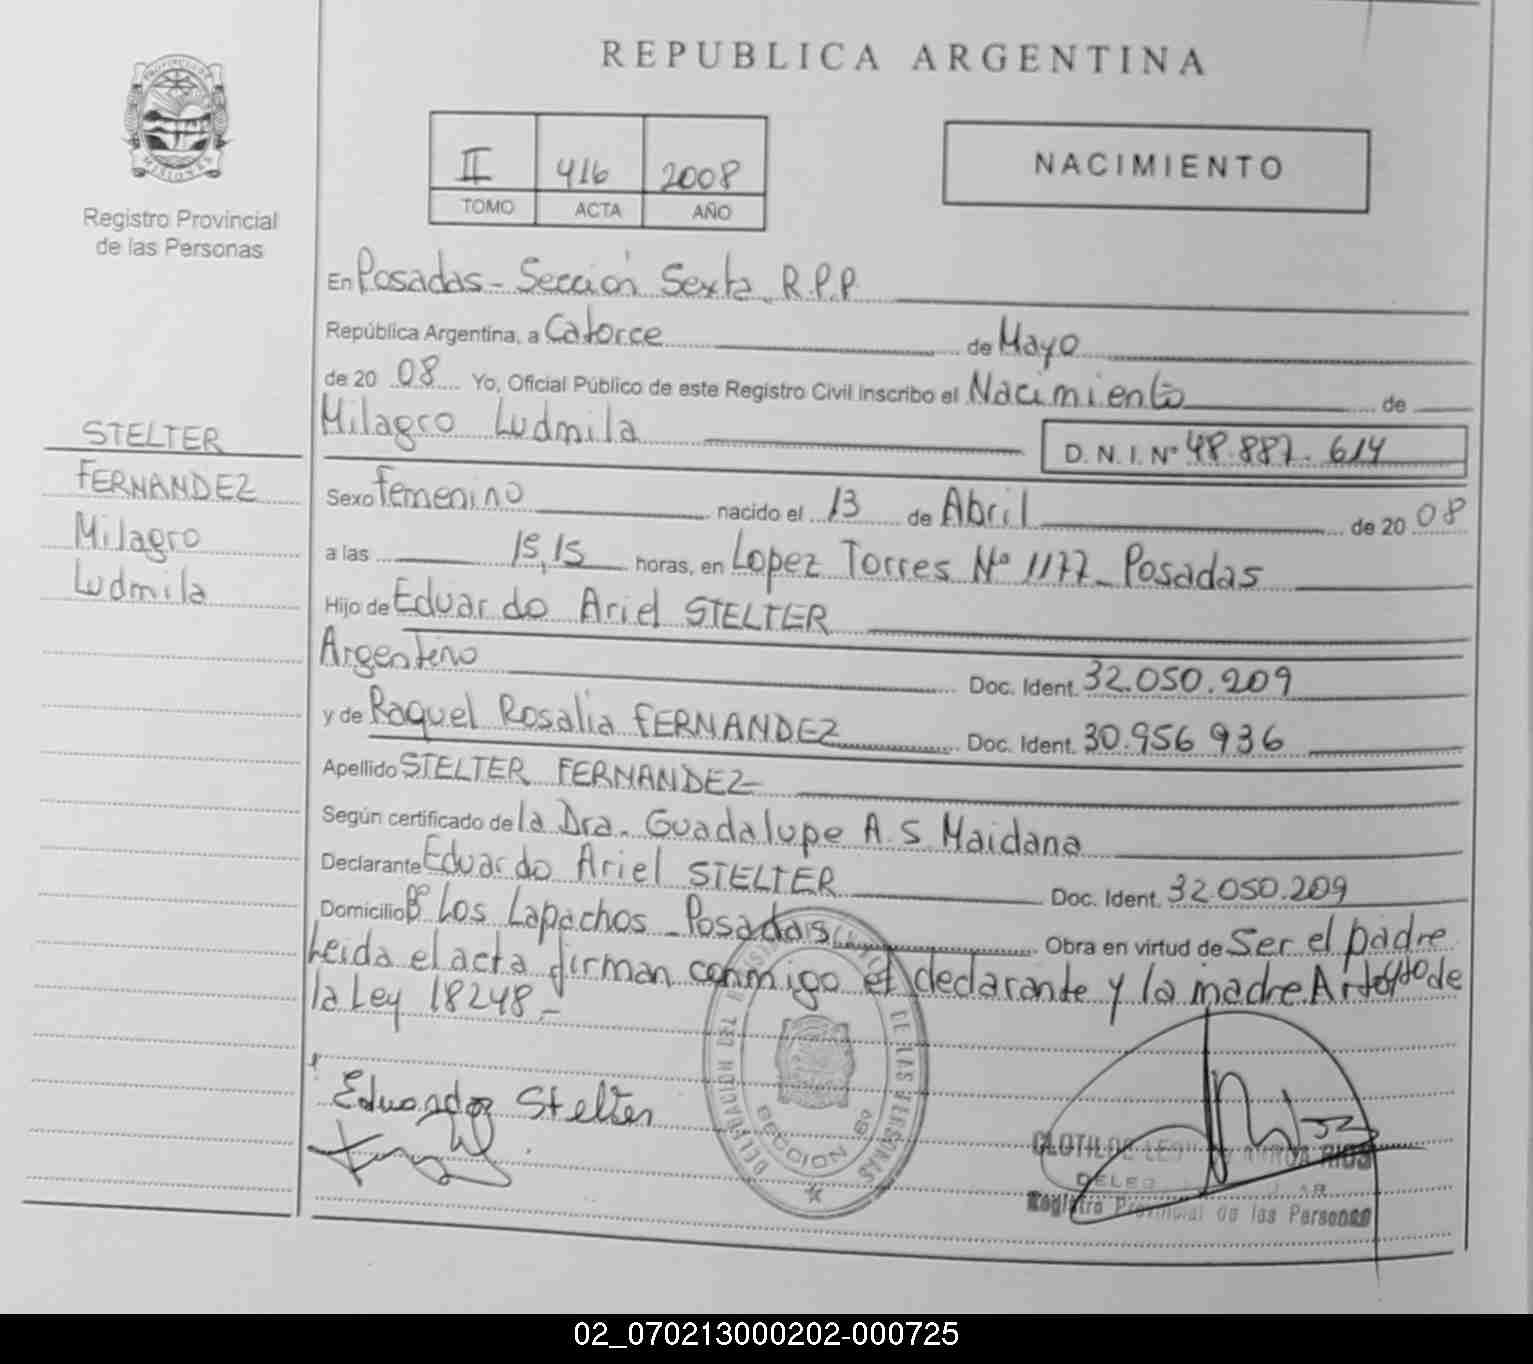 PROVINCIA DE
MISIONES
Registro Provincial
de las Personas
STELTER
FERNANDEZ
Milagro
Ludmila
REPUBLICA ARGENTINA
II 416 2008
TOMO ACTA AÑO
NACIMIENTO
En Posadas - Sección Sexta R.P.P.
República Argentina, a Catorce de Mayo
de 20 08 Yo, Oficial Público de este Registro Civil inscribo el Nacimiento de
Milagro Ludmila D.N.I. Nº 48.887.614
Sexo Femenino nacido el 13 de Abril de 20 08
a las 15,15 horas, en Lopez Torres Nº 1177 - Posadas
Hijo de Eduardo Ariel STELTER
Argentino Doc. Ident. 32.050.209
y de Raquel Rosalia FERNANDEZ Doc. Ident. 30.956 936
Apellido STELTER FERNANDEZ
Según certificado de la Dra. Guadalupe A. S Maidana
Declarante Eduardo Ariel STELTER Doc. Ident. 32.050.209
Domicilio Bº Los Lapachos - Posadas Obra en virtud de Ser el padre
Leida el acta firman conmigo el declarante y la madre. Art de
la Ley 18248 -
Eduardo Stelter
DELEGACION DEL REGISTRO DE LAS PERSONAS
SECCION 6º
CLOTILDE RIOS
Registro Provincial de las Personas
02_070213000202-000725